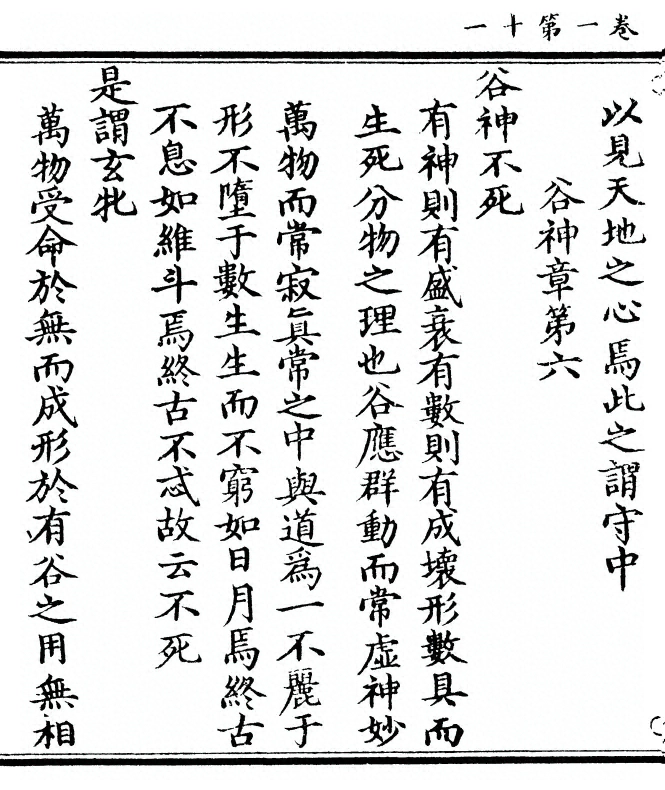 卷一第十一
以見天地之心焉此之謂守中
谷神章第六
谷神不死
有神則有盛衰有數則有成壞形數具而
生死分物之理也谷應群動而常虛神妙
萬物而常寂眞常之中與道爲一不麗于
形不墮于數生生而不窮如日月焉終古
不息如維斗焉終古不忒故云不死
是謂玄牝
萬物受命於無而成形於有谷之用無相